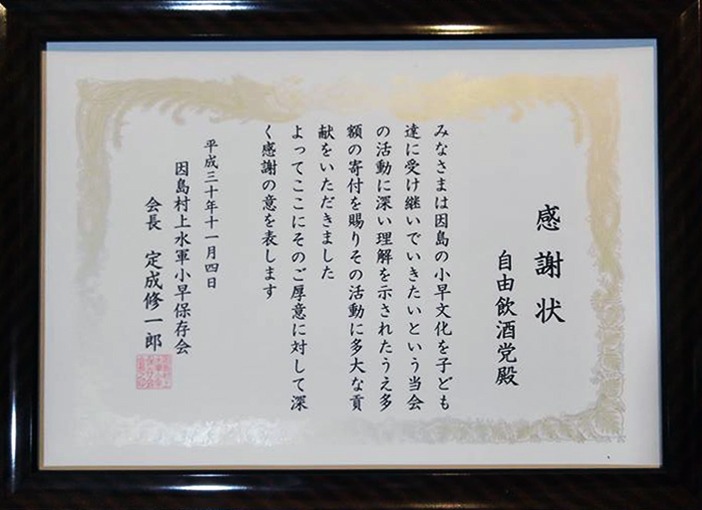 感謝状
自由飲酒党殿
みなさまは因島の小早文化を子ども
達に受け継いでいきたいという当会
の活動に深い理解を示されたうえ多
額の寄付を賜りその活動に多大な貢
献をいただきました
よってここにそのご厚意に対して深
く感謝の意を表します
平成三十年十一月四日
因島村上水軍小早保存会
会長 定成修一郎